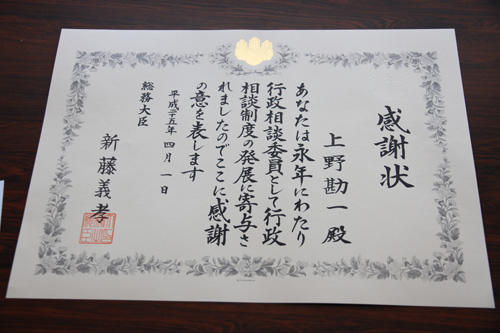 感謝状
上野勘一殿
あなたは永年にわたり
行政相談委員として行政
相談制度の発展に寄与さ
れましたのでここに感謝
の意を表します
平成二十五年四月一日
総務大臣
新藤義孝